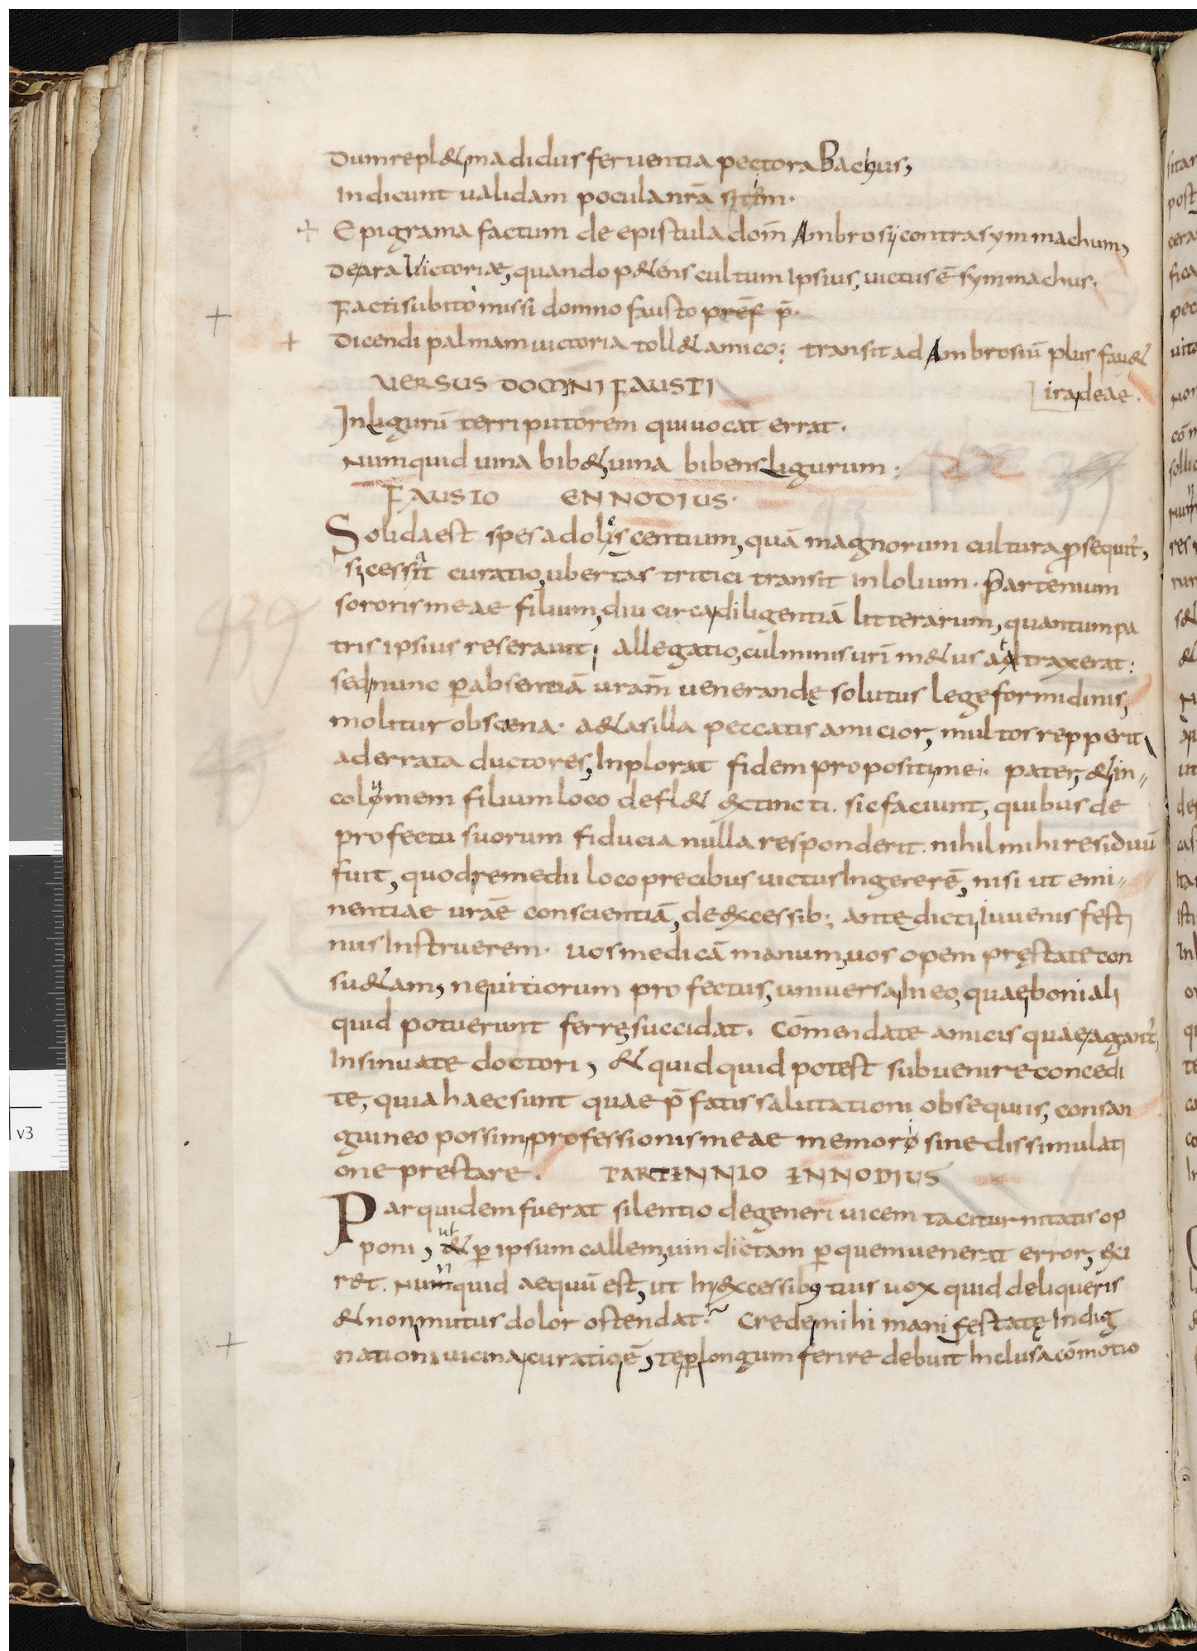 Dum repl& madidus feruentia pectora Bachus,
Indicunt ualidam pocula nrã sitim.
Epigrama factum de epistula dom̃ Ambrosij contra symmachum,
De ara Victoriae, quando p&ens cultum ipsius, uictus ẽ symmachus.
Facti subito missi domno fausto pref p̃.
Dicendi palmam uictoria toll& amico; transit ad Ambrosiũ plus fau&
ira deae.
VERSUS DOMNI FAUSTI
In ligurũ terri putorem qui uocat errat.
Numquid uina bib& uina bibens ligurum;
FAUSTO ENNODIUS.
Solida est spes adoliscentium, quã magnorum cultura ꝓsequit̃,
si cessat curatio, ubertas tritici transit in lolium. partenium
sororis meae filium, diu circa diligentiã litterarum, quantum pa
tris ipsius reserauit allegatio, culminis urĩ m&us adtraxerat;
sed nunc ꝑ absentiã uram̃ uenerandę solutus lege formidinis,
molitur obscena. a&as illa peccatis amicior, multos repperit
ad errata ductores, Inplorat fidem propositi mei. pater, & in
colomem filium loco defl& extincti. sic faciunt, quibus de
profectu suorum fiducia nulla responderit. nihil mihi residuũ
fuit, quod remedii loco precibus uictus Ingererẽ, nisi ut emi
nentiae urãe conscientiã, de excessib; ante dicti iuuenis festi
nus Instruerem. uos medicã manum, uos opem pręstate con
su&am, ne uitiorum profectus, uniuersa In eo, quae boni ali
quid potuerunt ferre, succidat. Cõmendate amicis quae agant̃,
Insinuate doctori, & quidquid potest subuenire concedi
te, quia haec sunt quae p̃fatis salutationi obsequiis, consan
guineo possim professionis meae memor sine dissimulati
one prestare. PARTENNIO ENNODIUS
Par quidem fuerat silentio degeneri uicem taciturnitatis op
poni, ut & ꝑ ipsum callem, uindictam ꝑ quem uenerat error, exi
r&. Numquid aequũ est, ut In excessibus tuis uox quid deliqueris
& non mutus dolor ostendat. Crede mihi manifestatę Indig
nationi uicina curatio ẽ, te ꝑ longum ferire debuit Inclusa cõmotio